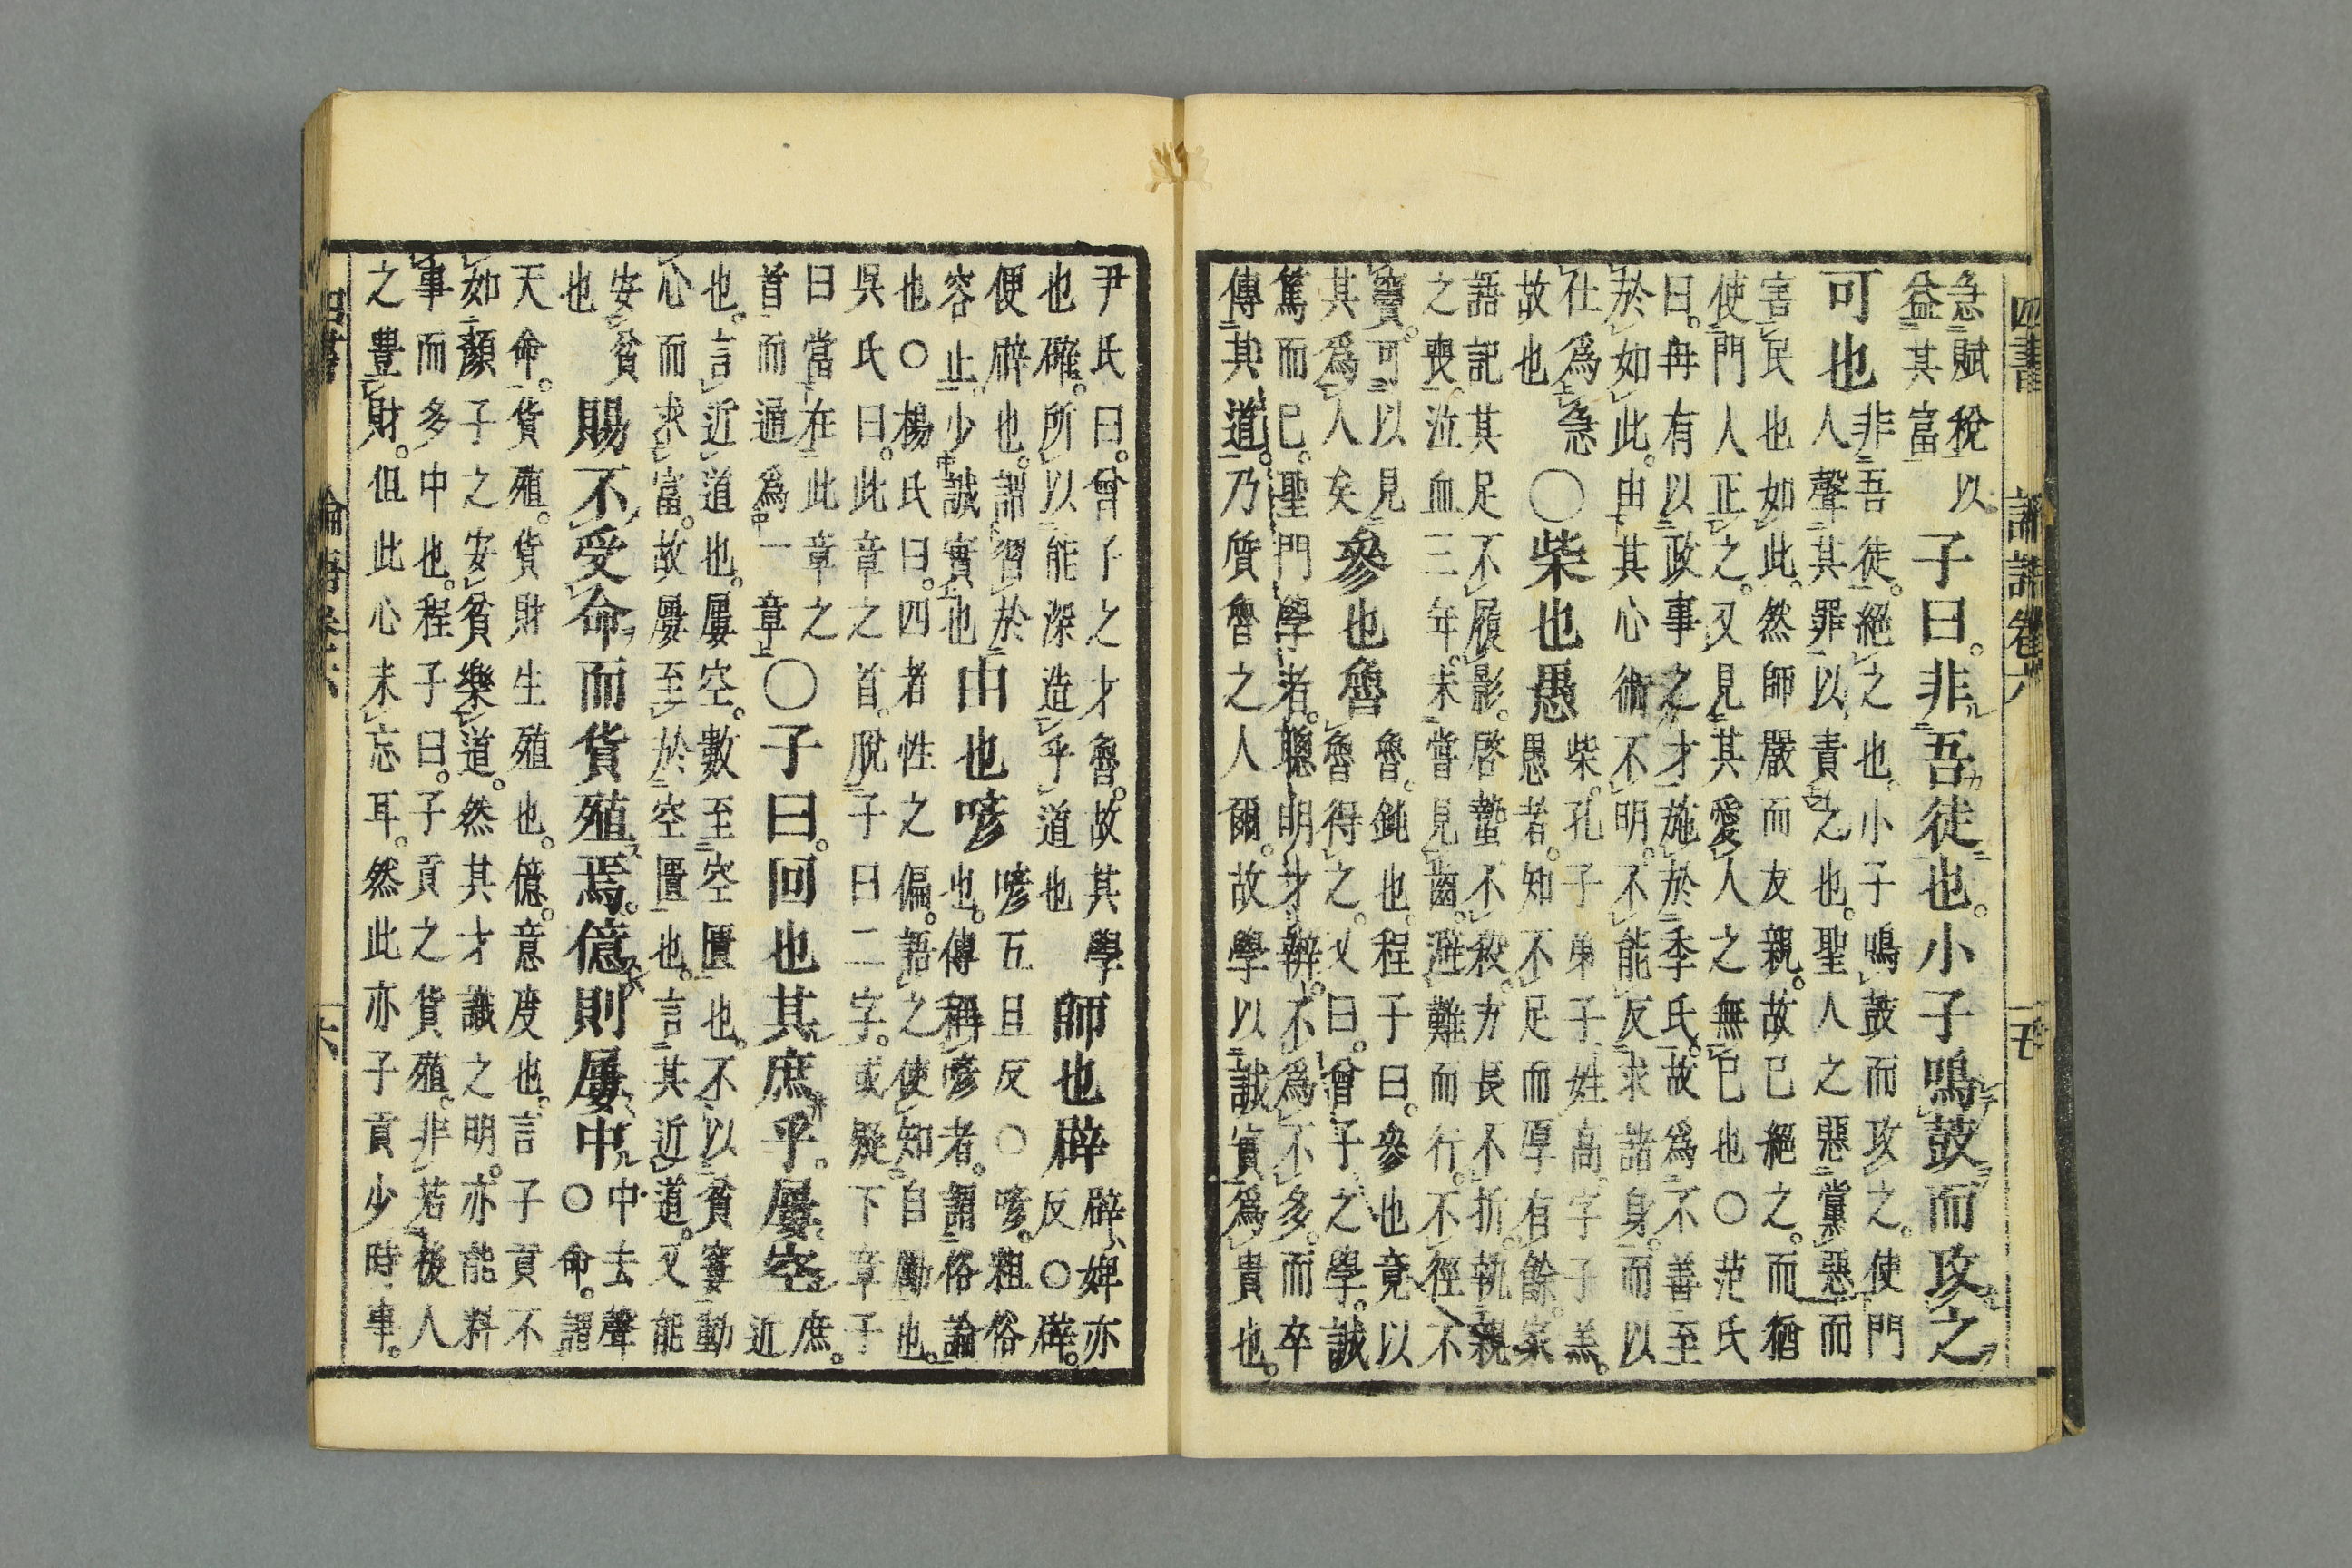 四書 論語卷六
急賦稅以
益其富
子曰。非吾徒也。小子鳴鼓而攻之
可也
非吾徒。絕之也。小子鳴鼓而攻之。使門
人聲其罪以責之也。聖人之惡黨惡而
害民也如此。然師嚴而友親。故已絕之。而猶
使門人正之。又見其愛人之無已也○范氏
曰。冉有以政事之才施於季氏。故爲不善至
於如此。由其心術不明。不能反求諸身。而以
仕爲急
故也
○柴也愚
柴。孔子弟子。姓高。字子羔。
愚者。知不足而厚有餘。家
語記其足不履影。啓蟄不殺。方長不折。執親
之喪。泣血三年。未嘗見齒。避難而行。不徑不
竇。可以見
其爲人矣
參也魯
魯。鈍也。程子曰。參也竟以
魯得之。又曰。曾子之學。誠
篤而已。聖門學者。聰明才辯。不爲不多。而卒
傳其道。乃質魯之人爾。故學以誠實爲貴也。
尹氏曰。曾子之才魯。故其學
也確。所以能深造乎道也
師也辟
辟婢亦
反○辟。
便辟也。謂習於
容止。少誠實也
由也喭
喭五旦反○喭。粗俗
也。傳稱喭者。謂俗論
也○楊氏曰。四者性之偏。語之使知自勵也。
吳氏曰。此章之首。脫子曰二字。或疑下章子
曰當在此章之
首而通爲一章
○子曰。回也其庶乎。屢空
庶。
近
也。言近道也。屢空。數至空匱也。不以貧窶動
心而求富。故屢至於空匱也。言其近道。又能
安貧
也
賜不受命而貨殖焉。億則屢中
中去聲
○命。謂
天命。貨殖。貨財生殖也。億。意度也。言子貢不
如顏子之安貧樂道。然其才識之明。亦能料
事而多中也。程子曰。子貢之貨殖。非若後人
之豊財。但此心未忘耳。然此亦子貢少時事。